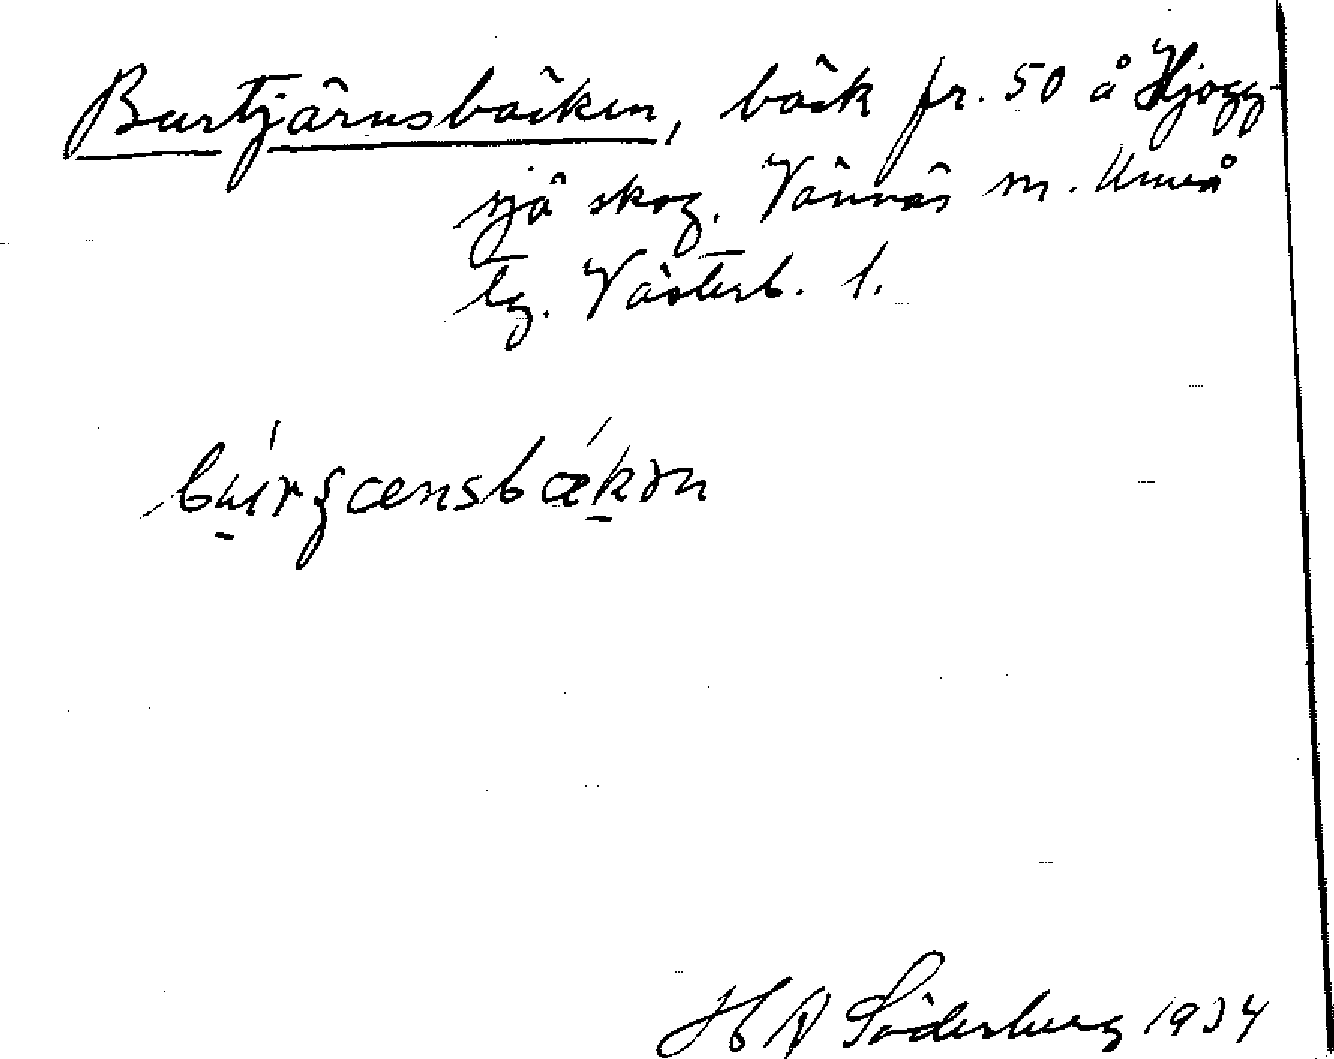 Burtjärnsbäcken, bäck fr. 50 å Hjogg-
sjö skog. Vännäs sn. Umeå
tg. Västerb. l.
bu̱rʒænsbæḵən
H A Söderberg 1934